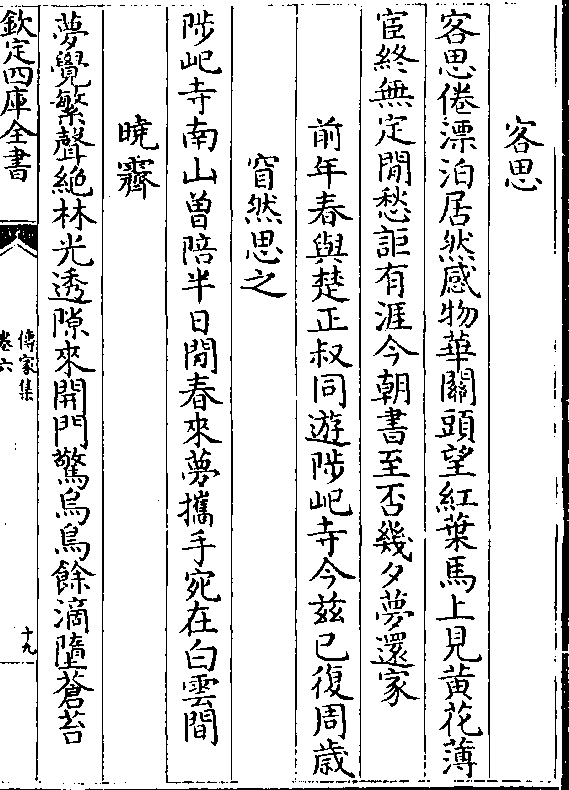 客思
客思倦漂泊居然感物華關頭望紅葉馬上見黄花薄
宦終無定閒愁詎有涯今朝書至否幾夕夢還家
前年春與楚正叔同遊陟屺寺今兹已復周歳
窅然思之
陟屺寺南山曽陪半日閒春來夢攜手宛在白雲間
曉霽
夢覺繁聲絶林光透隙來開門驚烏鳥餘滴墮蒼苔
欽定四庫全書
傳家集
卷六
十九